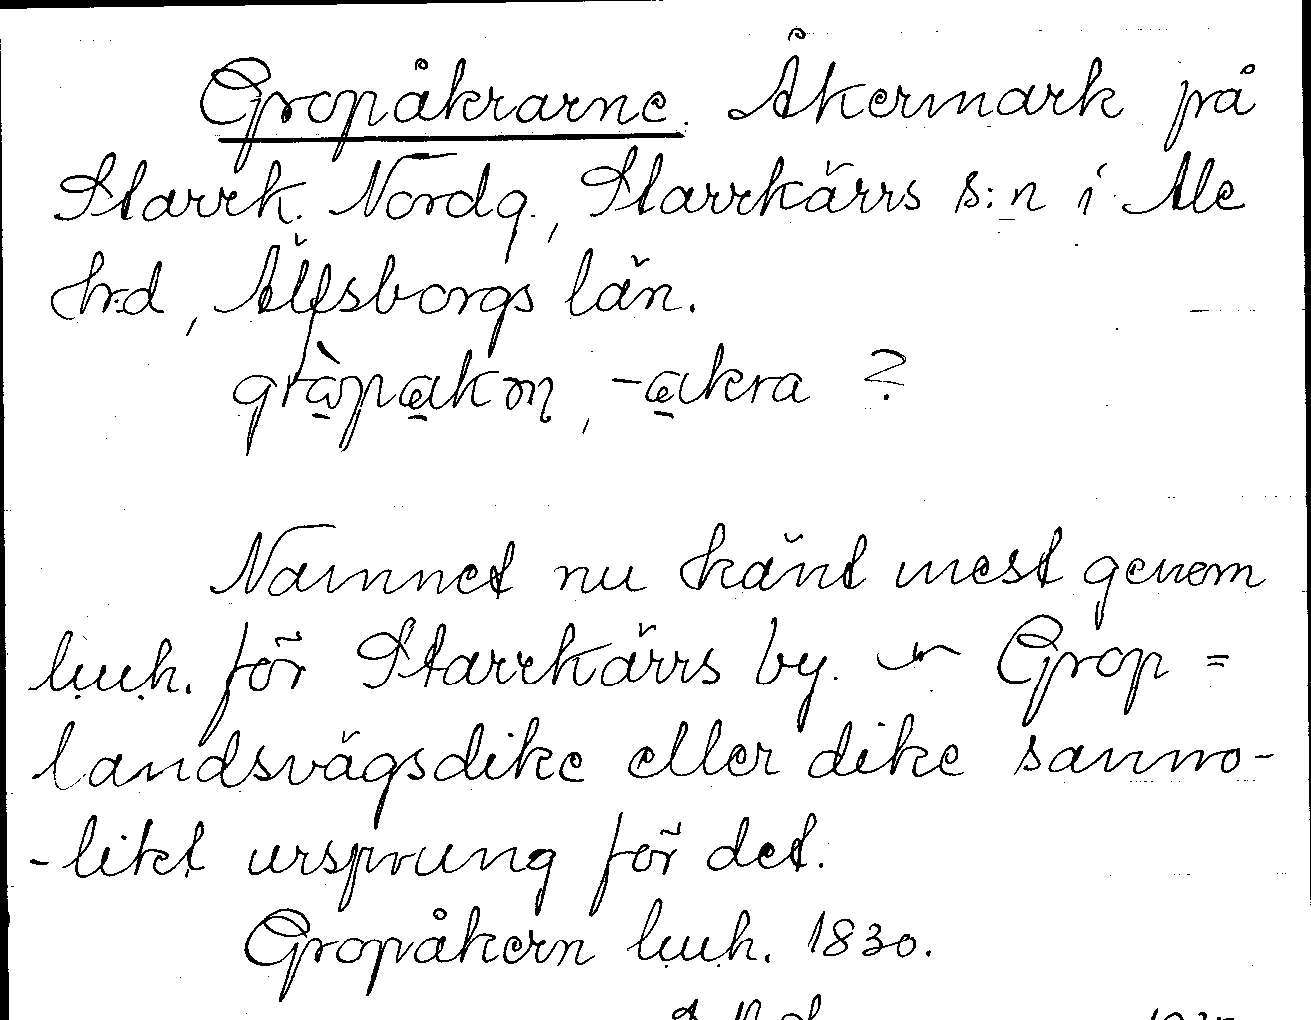 Gropåkrarne. Åkermark på
Starrk. Nordg., Starrkärrs s:n i Ale
hrd, Älfsborgs län.
-akra ?
Namnet nu känt mest genem
luuh. för Starrkärrs by. Grop =
landsvägsdike eller dike sanno-
-likt ursprung för det.
Gropåkern luuh. 1830.